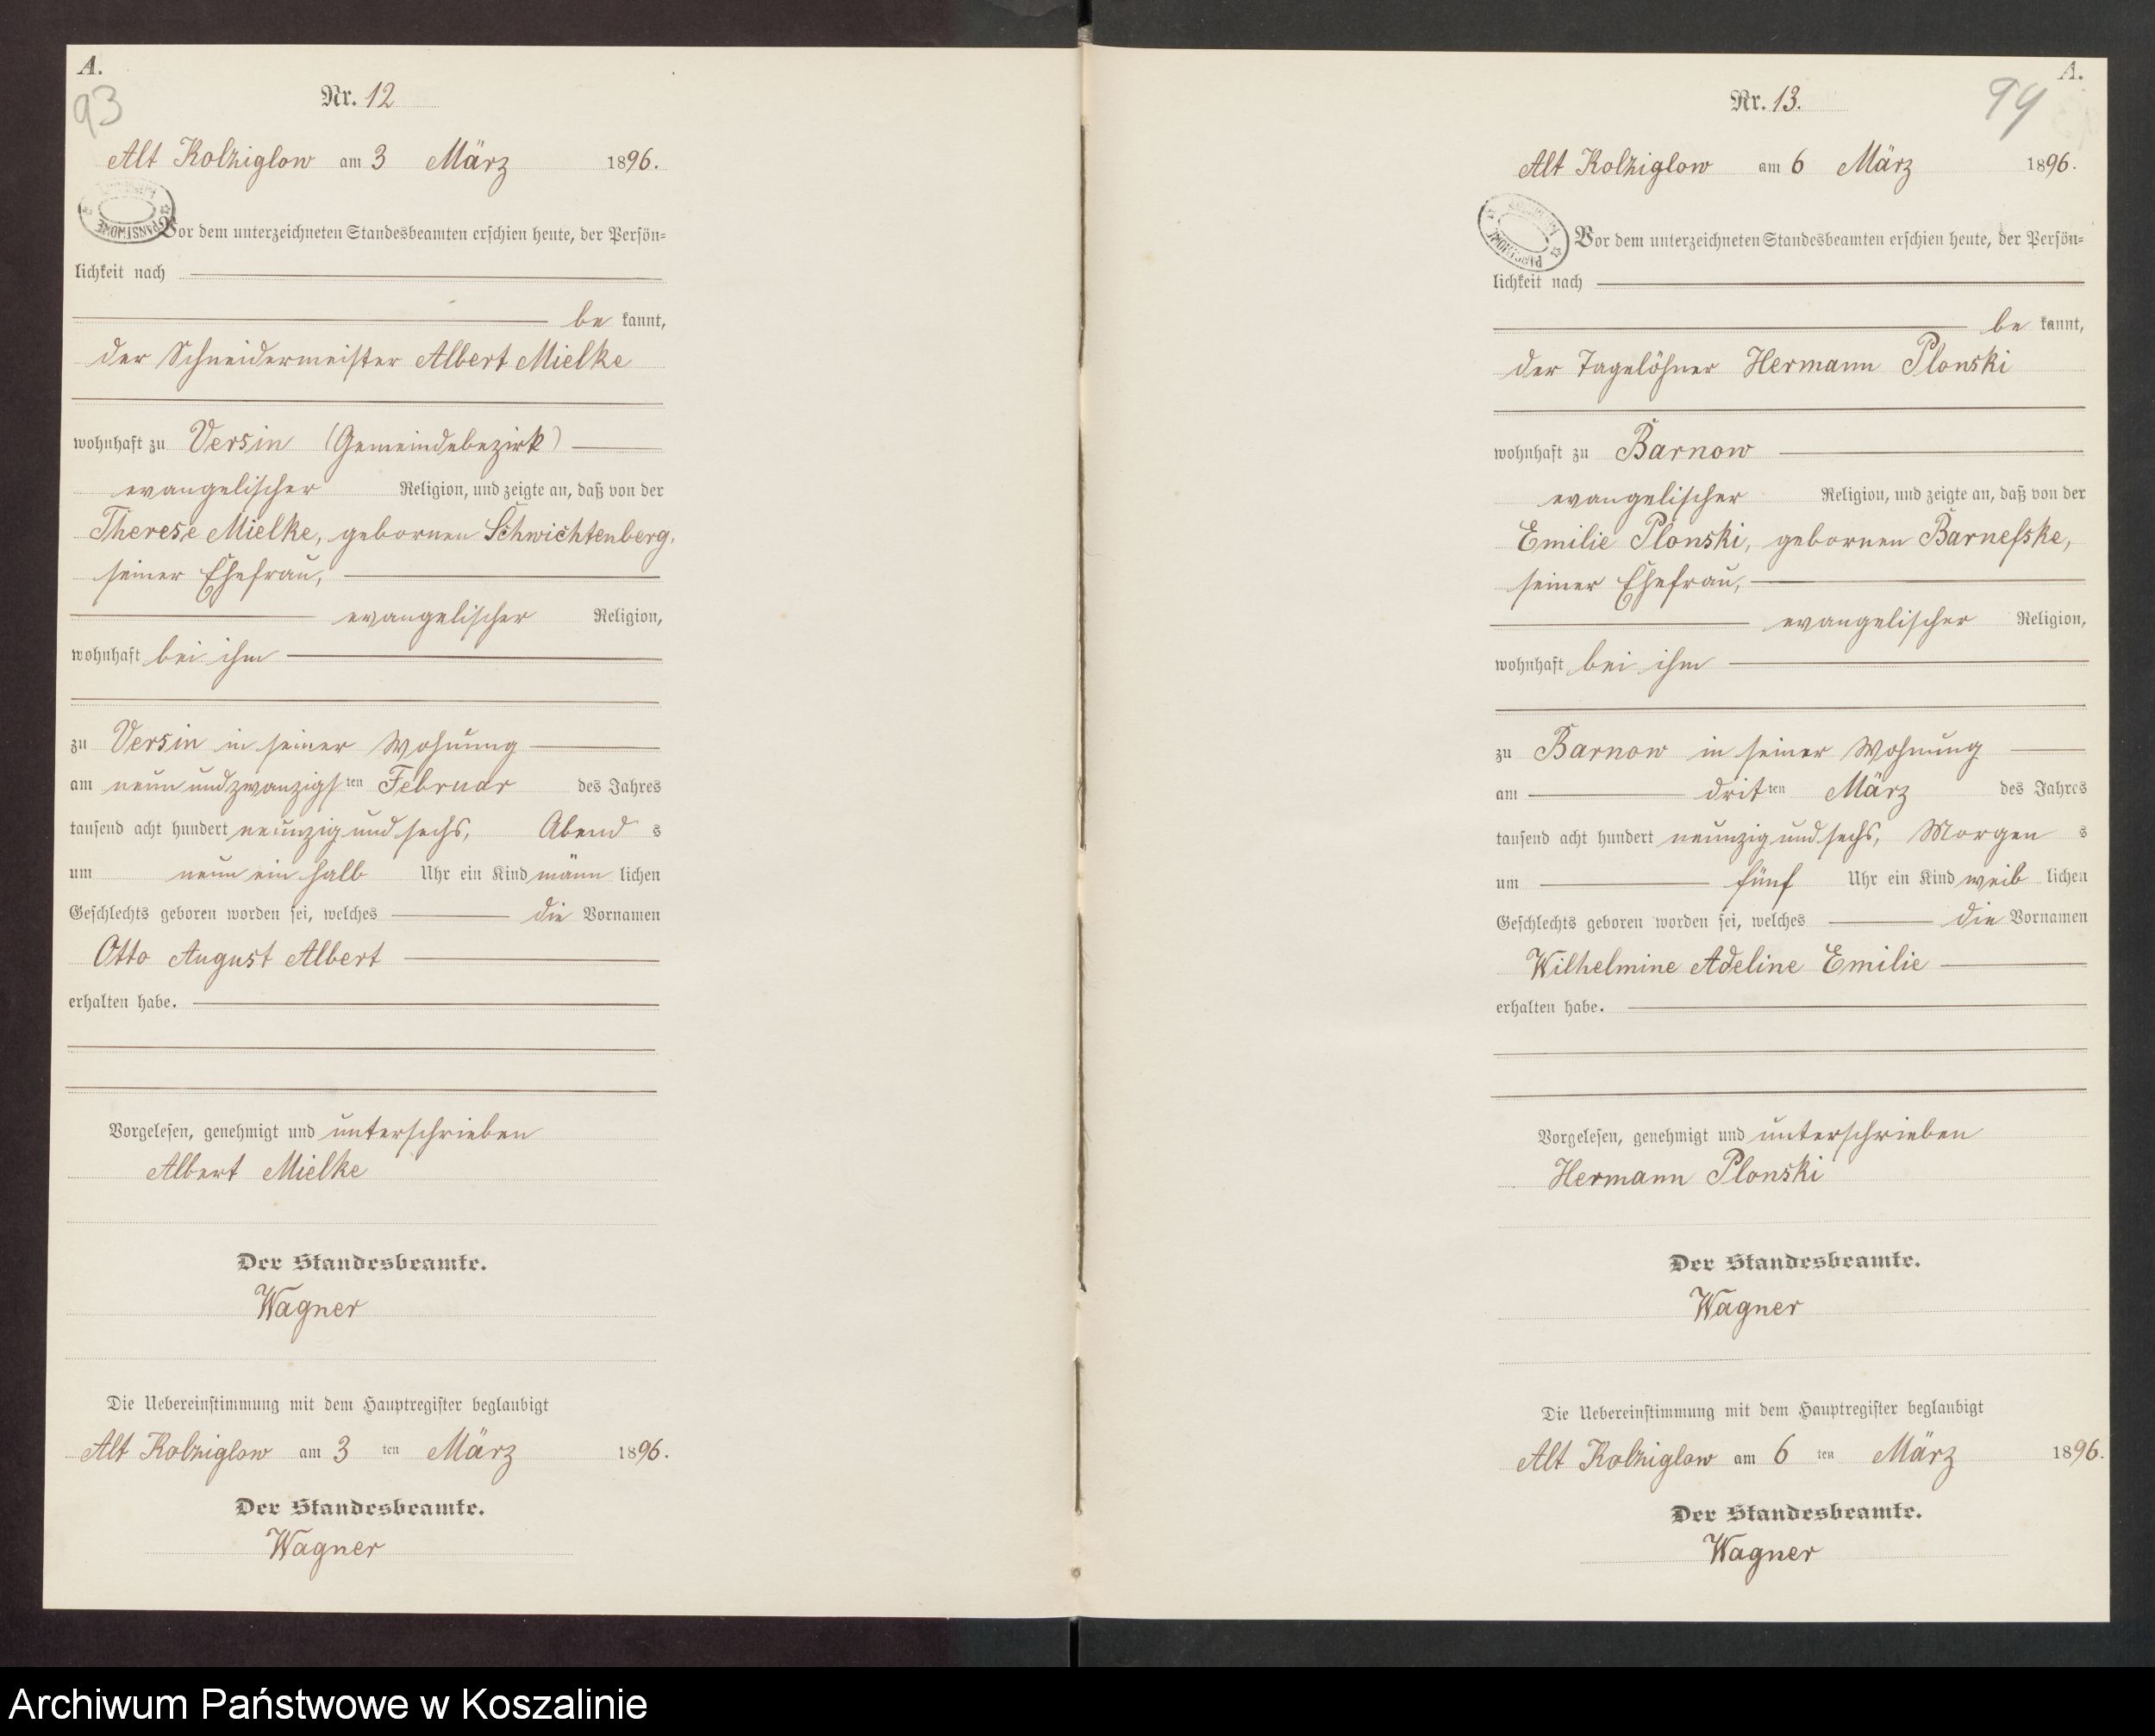 A.
93
Nr. 12
Alt Kolziglow am 3 März 1896.
Vor dem unterzeichneten Standesbeamten erschien heute, der Persön-
lichkeit nach
be kannt,
der Schneidermeister Albert Mielke
wohnhaft zu Versin (Gemeindebezirk)
evangelischer Religion, und zeigte an, daß von der
Therese Mielke, gebornen Schwichtenberg,
seiner Ehefrau,
evangelischer Religion,
wohnhaft bei ihm
zu Versin in seiner Wohnung
am neun und zwanzigsten Februar des Jahres
tausend acht hundert neunzig und sechs, Abend s
um neun ein halb Uhr ein Kind männ lichen
Geschlechts geboren worden sei, welches die Vornamen
Otto August Albert
erhalten habe.
Vorgelesen, genehmigt und unterschrieben
Albert Mielke
Der Standesbeamte.
Wagner
Die Uebereinstimmung mit dem Hauptregister beglaubigt
Alt Kolziglow am 3 ten März 1896.
Der Standesbeamte.
Wagner
A.
94
Nr. 13.
Alt Kolziglow am 6 März 1896.
Vor dem unterzeichneten Standesbeamten erschien heute, der Persön-
lichkeit nach
be kannt,
der Tagelöhner Hermann Plonski
wohnhaft zu Barnow
evangelischer Religion, und zeigte an, daß von der
Emilie Plonski, gebornen Barneſske,
seiner Ehefrau,
evangelischer Religion,
wohnhaft bei ihm
zu Barnow in seiner Wohnung
am dritten März des Jahres
tausend acht hundert neunzig und sechs, Morgen s
um fünf Uhr ein Kind weib lichen
Geschlechts geboren worden sei, welches die Vornamen
Wilhelmine Adeline Emilie
erhalten habe.
Vorgelesen, genehmigt und unterschrieben
Hermann Plonski
Der Standesbeamte.
Wagner
Die Uebereinstimmung mit dem Hauptregister beglaubigt
Alt Kolziglow am 6 ten März 1896.
Der Standesbeamte.
Wagner
Archiwum Państwowe w Koszalinie